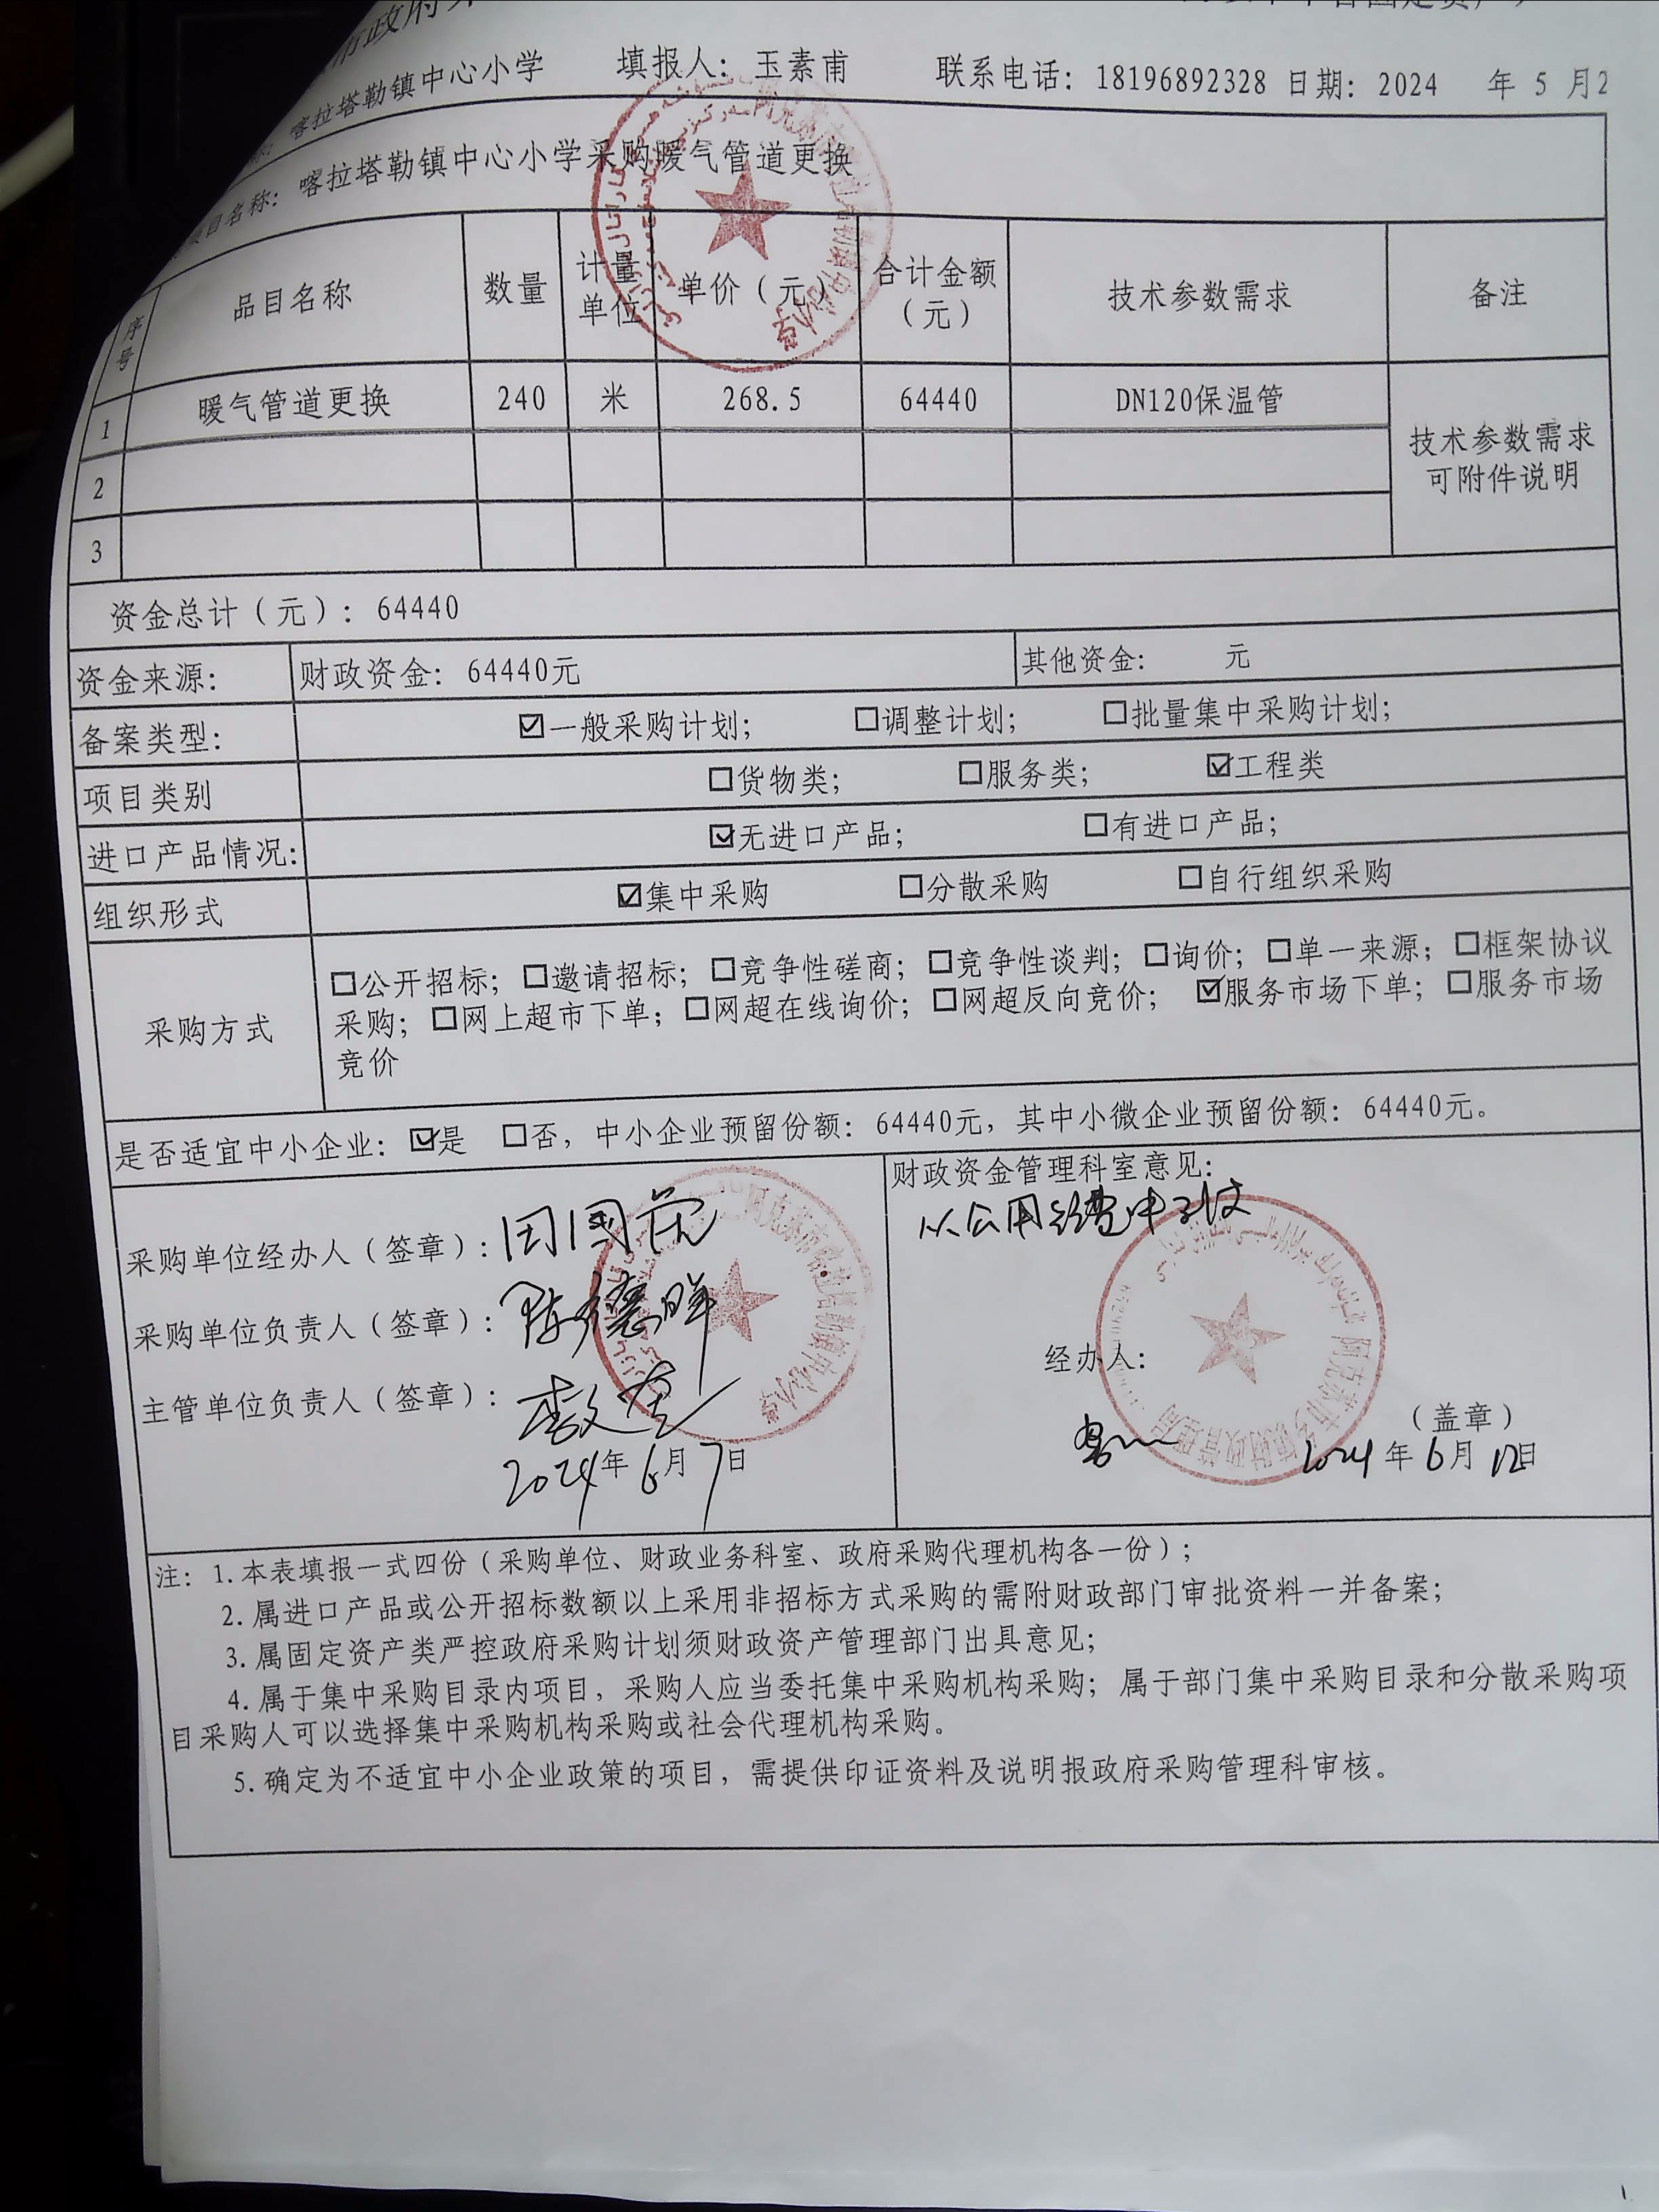 市政府
喀拉塔勒镇中心小学 填报人：玉素甫 联系电话：18196892328 日期：2024 年 5 月2
项目名称：喀拉塔勒镇中心小学采购暖气管道更换
序号 品目名称 数量 计量单位 单价（元） 合计金额（元） 技术参数需求 备注
1 暖气管道更换 240 米 268.5 64440 DN120保温管
技术参数需求可附件说明
2
3
资金总计（元）：64440
资金来源： 财政资金：64440元 其他资金： 元
备案类型： ☑一般采购计划； □调整计划； □批量集中采购计划；
项目类别 □货物类； □服务类； ☑工程类
进口产品情况： ☑无进口产品； □有进口产品；
组织形式 ☑集中采购 □分散采购 □自行组织采购
采购方式 □公开招标；□邀请招标；□竞争性磋商；□竞争性谈判；□询价；□单一来源；□框架协议
采购；□网上超市下单；□网超在线询价；□网超反向竞价； ☑服务市场下单；□服务市场
竞价
是否适宜中小企业：☑是 □否，中小企业预留份额：64440元，其中小微企业预留份额：64440元。
财政资金管理科室意见：
从公用经费中列支
采购单位经办人（签章）：田国荣
采购单位负责人（签章）：陈德晖
主管单位负责人（签章）：
2024年6月7日
经办人：
（盖章）
2024年6月12日
注：1.本表填报一式四份（采购单位、财政业务科室、政府采购代理机构各一份）；
2.属进口产品或公开招标数额以上采用非招标方式采购的需附财政部门审批资料一并备案；
3.属固定资产类严控政府采购计划须财政资产管理部门出具意见；
4.属于集中采购目录内项目，采购人应当委托集中采购机构采购；属于部门集中采购目录和分散采购项
目采购人可以选择集中采购机构采购或社会代理机构采购。
5.确定为不适宜中小企业政策的项目，需提供印证资料及说明报政府采购管理科审核。